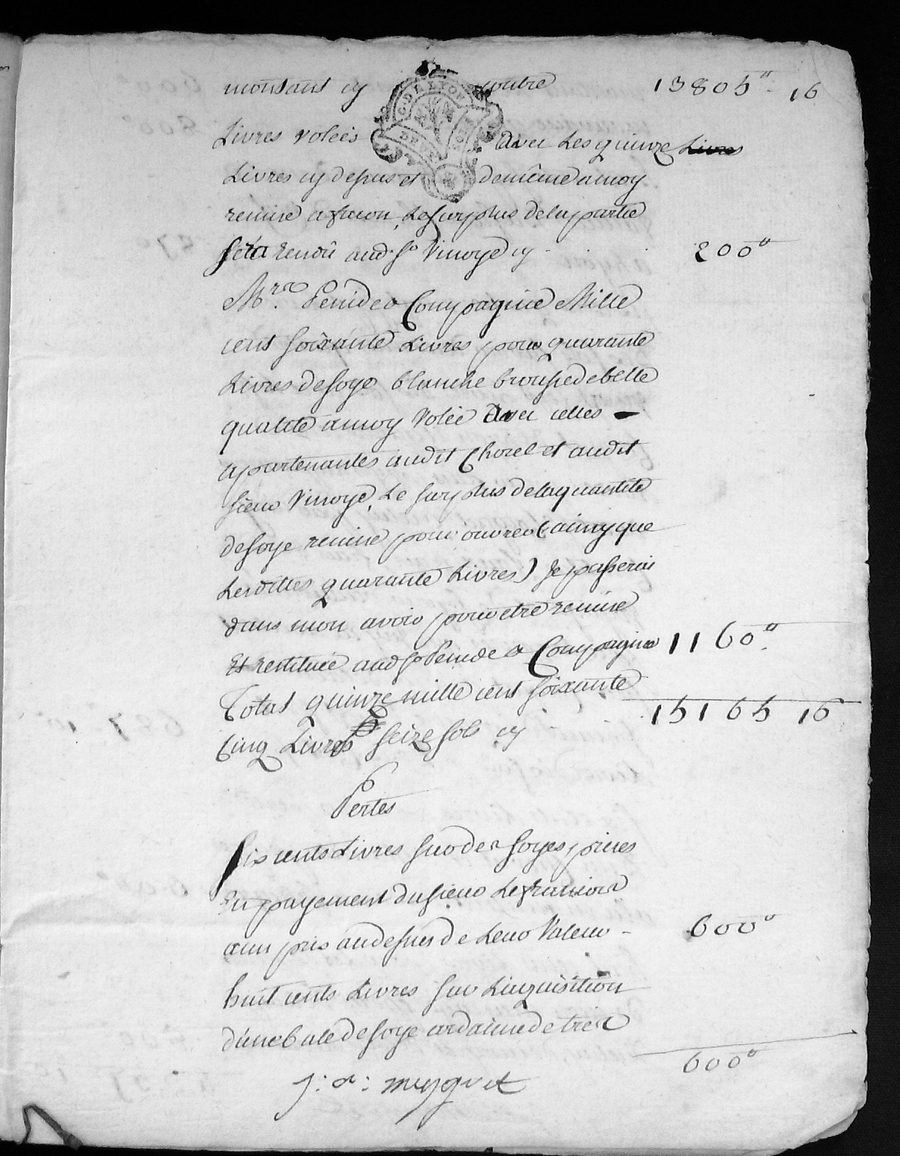 montant cy contre 13805ᵗᵗ 16
G. D. LYON
DEUX SOLS
Livres volées avec Les quinze Livres
Livres cy depus et de même a moy
remise a façon, Le surplus de la partie
seta rendû aud. Sr. Vinoye cy 200ᵗᵗ
Mrs. Penide & Compagnie Mille
cent soixante Livres pour quarante
Livres de soye blanche brousse de belle
qualité a moy volée avec celles
apartenantes audit Chorel et audit
sieur Vinoye, Le surplus de la quantité
de soye remise pour ouvrer (ainsy que
Lesdittes quarante Livres) Je passerai
dans mon avoir pour etre remise
Et restituée aud. Sr Penide & Compagnie 1160ᵗᵗ
Total quinze mille cent soixante
Cinq Livres seize sols cy 15165 16
Pertes
Six cents Livres sur des soyes prises
En payement du sieur
a un prix audesus de Leur valeur 600ᵗᵗ
huit cents Livres sur L'aquisition
d'une bale de soye ardaine de
600ᵗᵗ
J: a: meygret